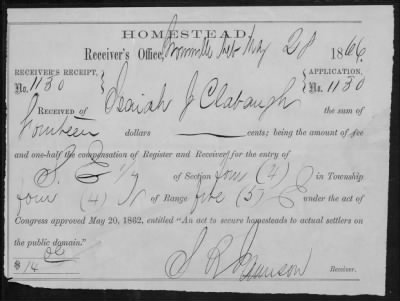 HOMESTEAD.
Receiver's Office, Brownville Neb May 28 1866.
RECEIVER'S RECEIPT, No. 1130
APPLICATION, No. 1130
RECEIVED OF Isaiah J Clabaugh the sum
of Fourteen dollars cents; being the amount of fee
and one-half the compensation of Register and Receiver for the entry of
S. E 1/4 of Section four (4) in Township
four (4) N of Range five (5) E under the act of
Congress approved May 20, 1862, entitled "An act to secure homesteads to actual settlers on
the public domain."
$ 14 00
S R Receiver.